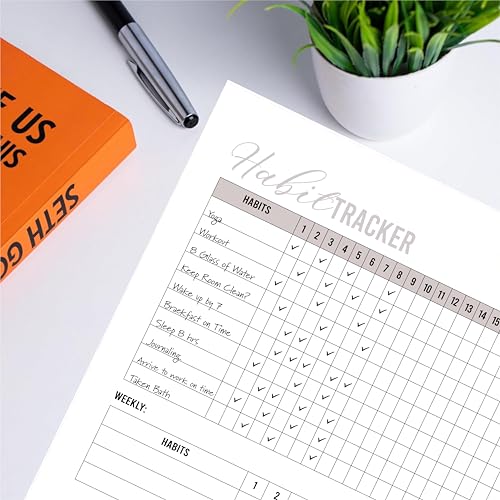 E US
HIS
SETH GO
Habit TRACKER
HABITS 1 2 3 4 5 6 7 8 9 10 11 12 13 14 15
Yoga
Workout
8 Glass of Water
Keep Room Clean?
Wake up by 7
Breakfast on Time
Sleep 8 hrs
Journaling
Arrive to work on time
Taken Bath
WEEKLY:
HABITS 1 2